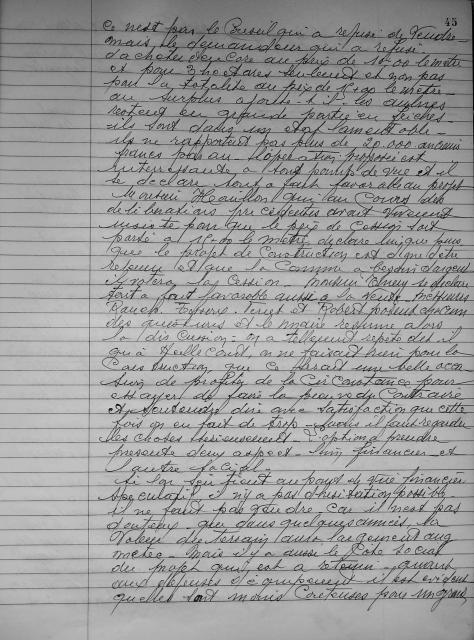 45
Ce n'est pas le Conseil qui a refusé de vendre
mais le demandeur qui a refusé
d'acheter encore au prix de 10.00 le mètre
et pour 3 hectares seulement et non pas
pour la totalité au prix de le mètre
au surplus ajoute-t-il les
restent en grande partie en friches
ils sont dans un état lamentable
ils ne rapportent pas plus de 20.000 anciens
francs par an l'opération proposée est
intéressante à tout point de vue et il
se déclare tout à fait favorable au projet
Monsieur qui au cours des
délibérations précédentes avait vivement
insisté pour que le prix de cession soit
porté à le mètre déclare lui que puis
que le projet de construction est digne d'être
retenu et que la Commune a besoin d'argent
il votera la cession. Monsieur se déclare
tout à fait favorable aussi à la vente. Messieurs
et Robert posent chacun
des questions et le maire résume alors
la discussion. on a tellement répété dit il
qu'à Heillecourt on ne faisait rien pour la
Construction, que ce serait une belle occa
sion de profiter de la Circonstance pour
essayer de faire la preuve du Contraire
et d'entendre dire avec satisfaction que cette
fois on en fait de trop. il faut regarder
les choses sérieusement. L'option à prendre
présente deux aspects. L'un financier et
l'autre social.
Si l'on s'en tient au point de vue financier
spéculatif il n'y a pas d'hésitation possible
il ne faut pas vendre car il n'est pas
douteux que dans quelques années, la
valeur du terrain aura largement aug
menté. Mais il y a aussi le côté social
du projet qui est à retenir. quant
aux dépenses d'équipement il est évident
qu'elles sont moins coûteuses pour un grand